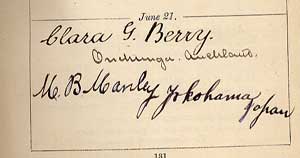 June 21.
Clara G. Berry.
Onehunga. Auckland.
M. B. Manley Yokohama Japan
131